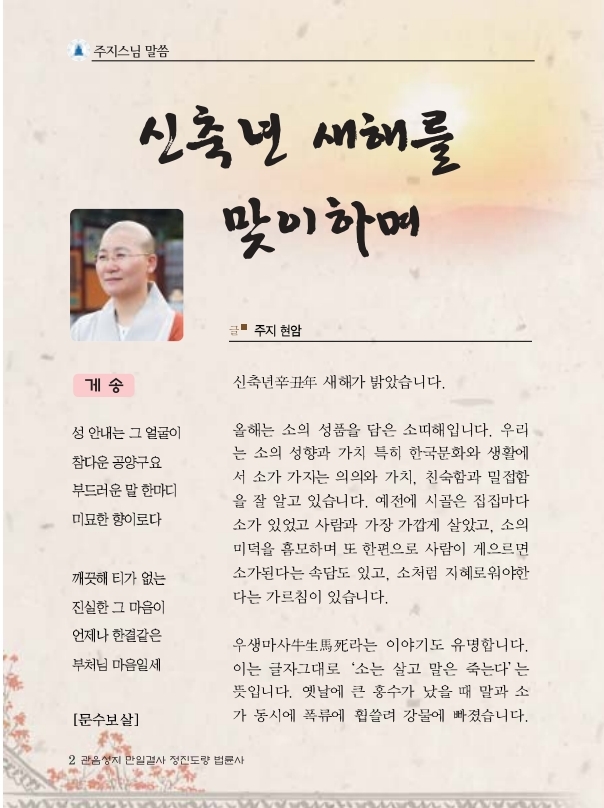 주지스님 말씀
신축년 새해를
맞이하며
글 주지 현암
게 송
성 안내는 그 얼굴이
참다운 공양구요
부드러운 말 한마디
미묘한 향이로다
깨끗해 티가 없는
진실한 그 마음이
언제나 한결같은
부처님 마음일세
[문수보살]
신축년辛丑年 새해가 밝았습니다.
올해는 소의 성품을 담은 소띠해입니다. 우리
는 소의 성향과 가치 특히 한국문화와 생활에
서 소가 가지는 의의와 가치, 친숙함과 밀접함
을 잘 알고 있습니다. 예전에 시골은 집집마다
소가 있었고 사람과 가장 가깝게 살았고, 소의
미덕을 흠모하며 또 한편으로 사람이 게으르면
소가된다는 속담도 있고, 소처럼 지혜로워야한
다는 가르침이 있습니다.
우생마사牛生馬死라는 이야기도 유명합니다.
이는 글자그대로 ‘소는 살고 말은 죽는다’는
뜻입니다. 옛날에 큰 홍수가 났을 때 말과 소
가 동시에 폭류에 휩쓸려 강물에 빠졌습니다.
2 관음성지 만일결사 정진도량 법륜사